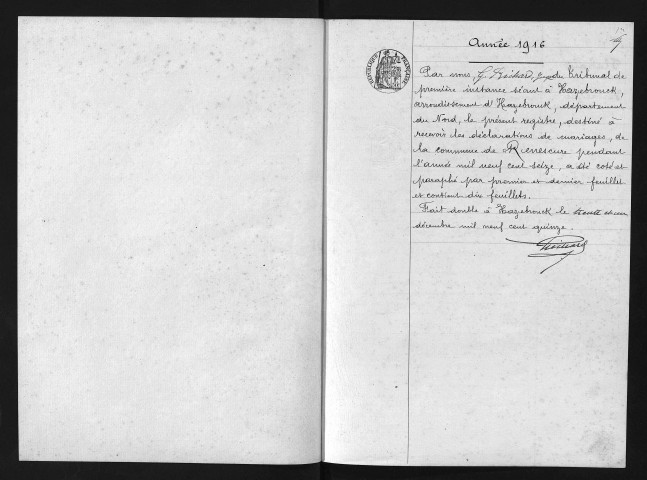 Année 1916
RÉPUBLIQUE FRANÇAISE
Par nous, du Tribunal de
première instance séant à Hazebrouck,
arrondissement d'Hazebrouck, département
du Nord, le présent registre, destiné à
recevoir les déclarations de mariages, de
la commune de Renescure pendant
l'année mil neuf cent seize, a été coté et
paraphé par premier et dernier feuillet
et contient dix feuillets.
Fait double à Hazebrouck le trente et un
décembre mil neuf cent quinze.